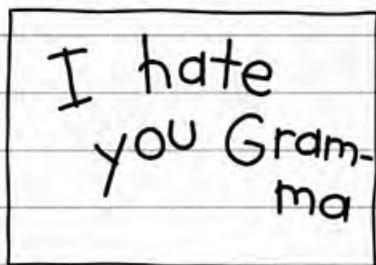 I hate
you Gram-
ma